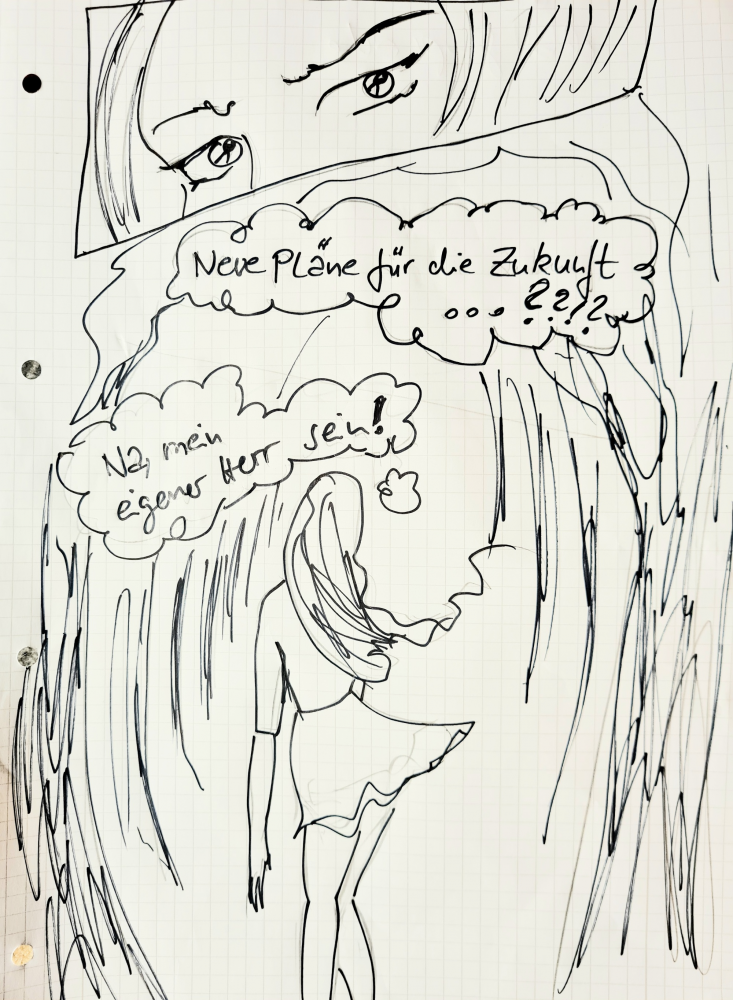 Neue Pläne für die Zukunft
... ????
Na, mein
eigener Herr sein!